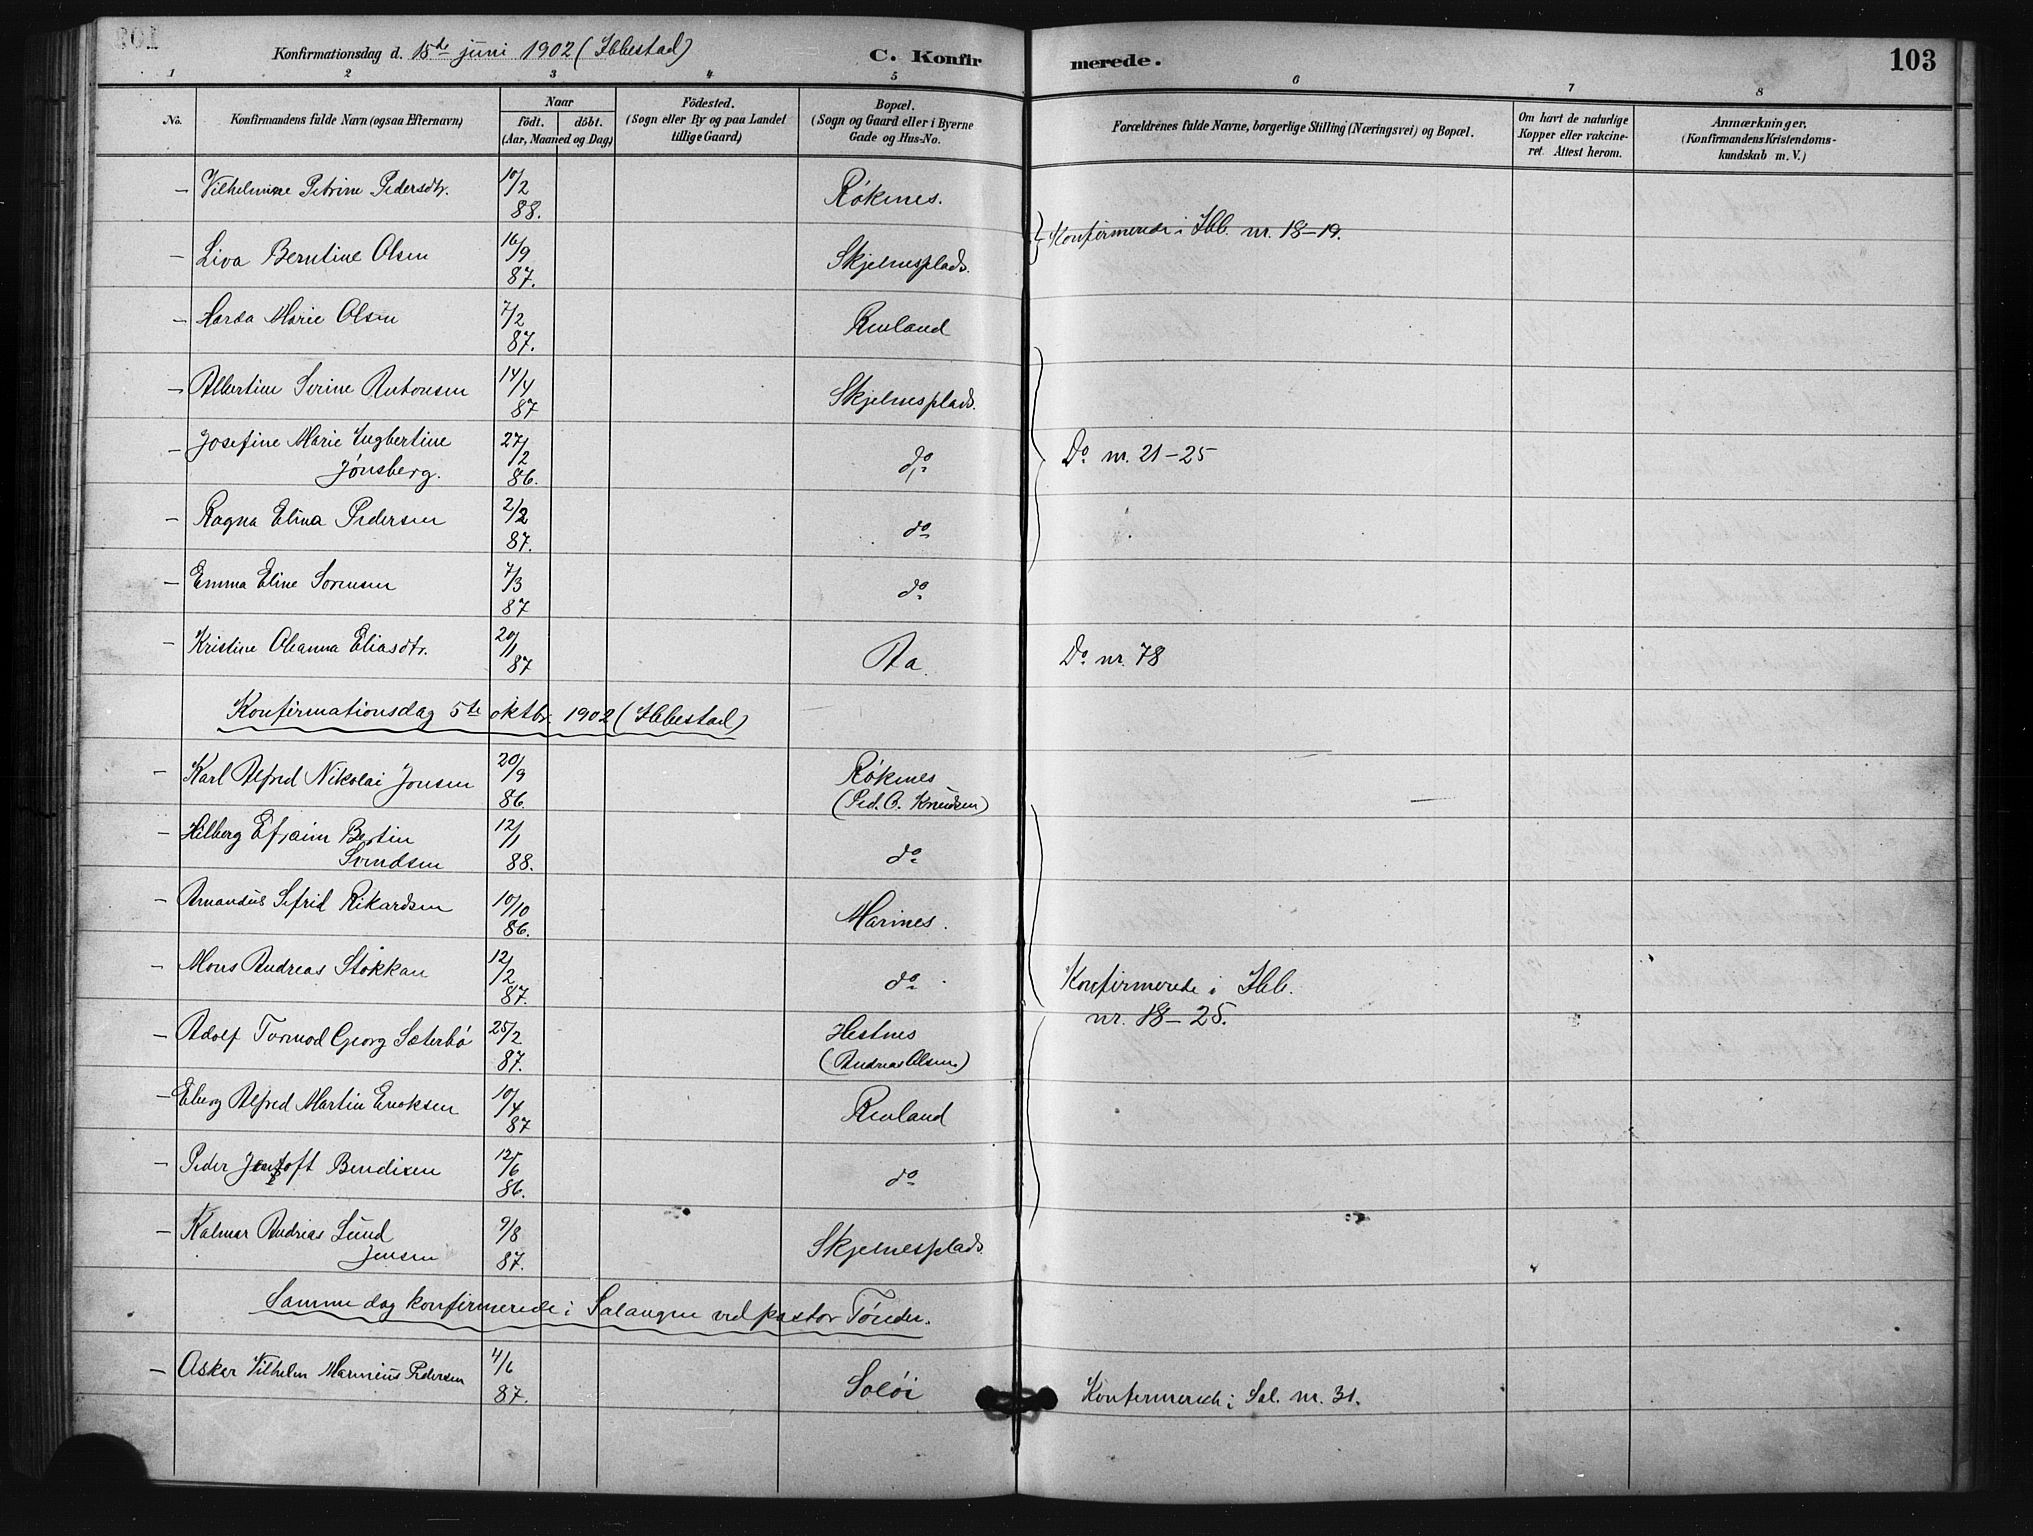 Konfirmationsdag d. 15de juni 1902 (Ibbestad) C. Konfirmerede. 103
1 2 3 4 5 6 7 8
No. Konfirmandens fulde Navn (ogsaa Efternavn)
Naar
födt. döbt.
(Aar, Maaned og Dag)
Födested.
(Sogn eller By og paa Landet
tillige Gaard)
Bopæl.
(Sogn og Gaard eller i Byerne
Gade og Hus-No.
Forældrenes fulde Navne, borgerlige Stilling (Næringsvei) og Bopæl.
Om havt de naturlige
Kopper eller vakcine-
ret. Attest herom.
Anmærkninger.
(Konfirmandens Kristendoms-
kundskab m. V.)
– Vilhelmine Petrine Pedersdtr. 10/2 88. Røkenes.
Konfirmerede i Ibb. nr. 18–19.
– Liva Berntine Olsen 16/9 87. Skjelnesplads.
– Harda Marie Olsen 7/2 87. Renland
– Albertine Serine Antonsen 14/4 87 Skjelnesplads.
– Josefine Marie Engbertine
Jønsberg. 27/2 86. do
Do nr. 21–25
– Ragna Elina Pedersen 2/2 87. do
– Emma Eline Sørensen 7/3 87 do
– Kristine Oleanna Eliasdtr. 20/1 87 Aa. Do nr. 78
Konfirmationsdag 5te oktbr. 1902 (Ibbestad)
– Karl Alfred Nikolai Jonsen 20/9 86. Røkenes
(Ped. O. Knudsen)
– Hilberg Efraim Bertin
Svendsen 12/1 88. do
– Amandus Sefrid Rikardsen 10/10 86. Marines.
– Mons Andreas Stokkan 12/2 87. do
Konfirmerede i Ibb.
nr. 18–25.
– Adolf Tormod Georg Sæterbø 25/2 87. Hestnes
(Andreas Olsen)
– Eberg Alfred Martin Enoksen 10/4 87 Renland
– Peder Jentoft Bendixen 12/6 86. do
– Kalmar Andreas Lund
Jensen 9/8 87. Skjelnesplads.
Samme dag konfirmerede i Salangen ved pastor Tønder.
– Askar Vilhelm Marinius Pedersen 4/6 87. Soløi
Konfirmerede i Sal. nr. 31.